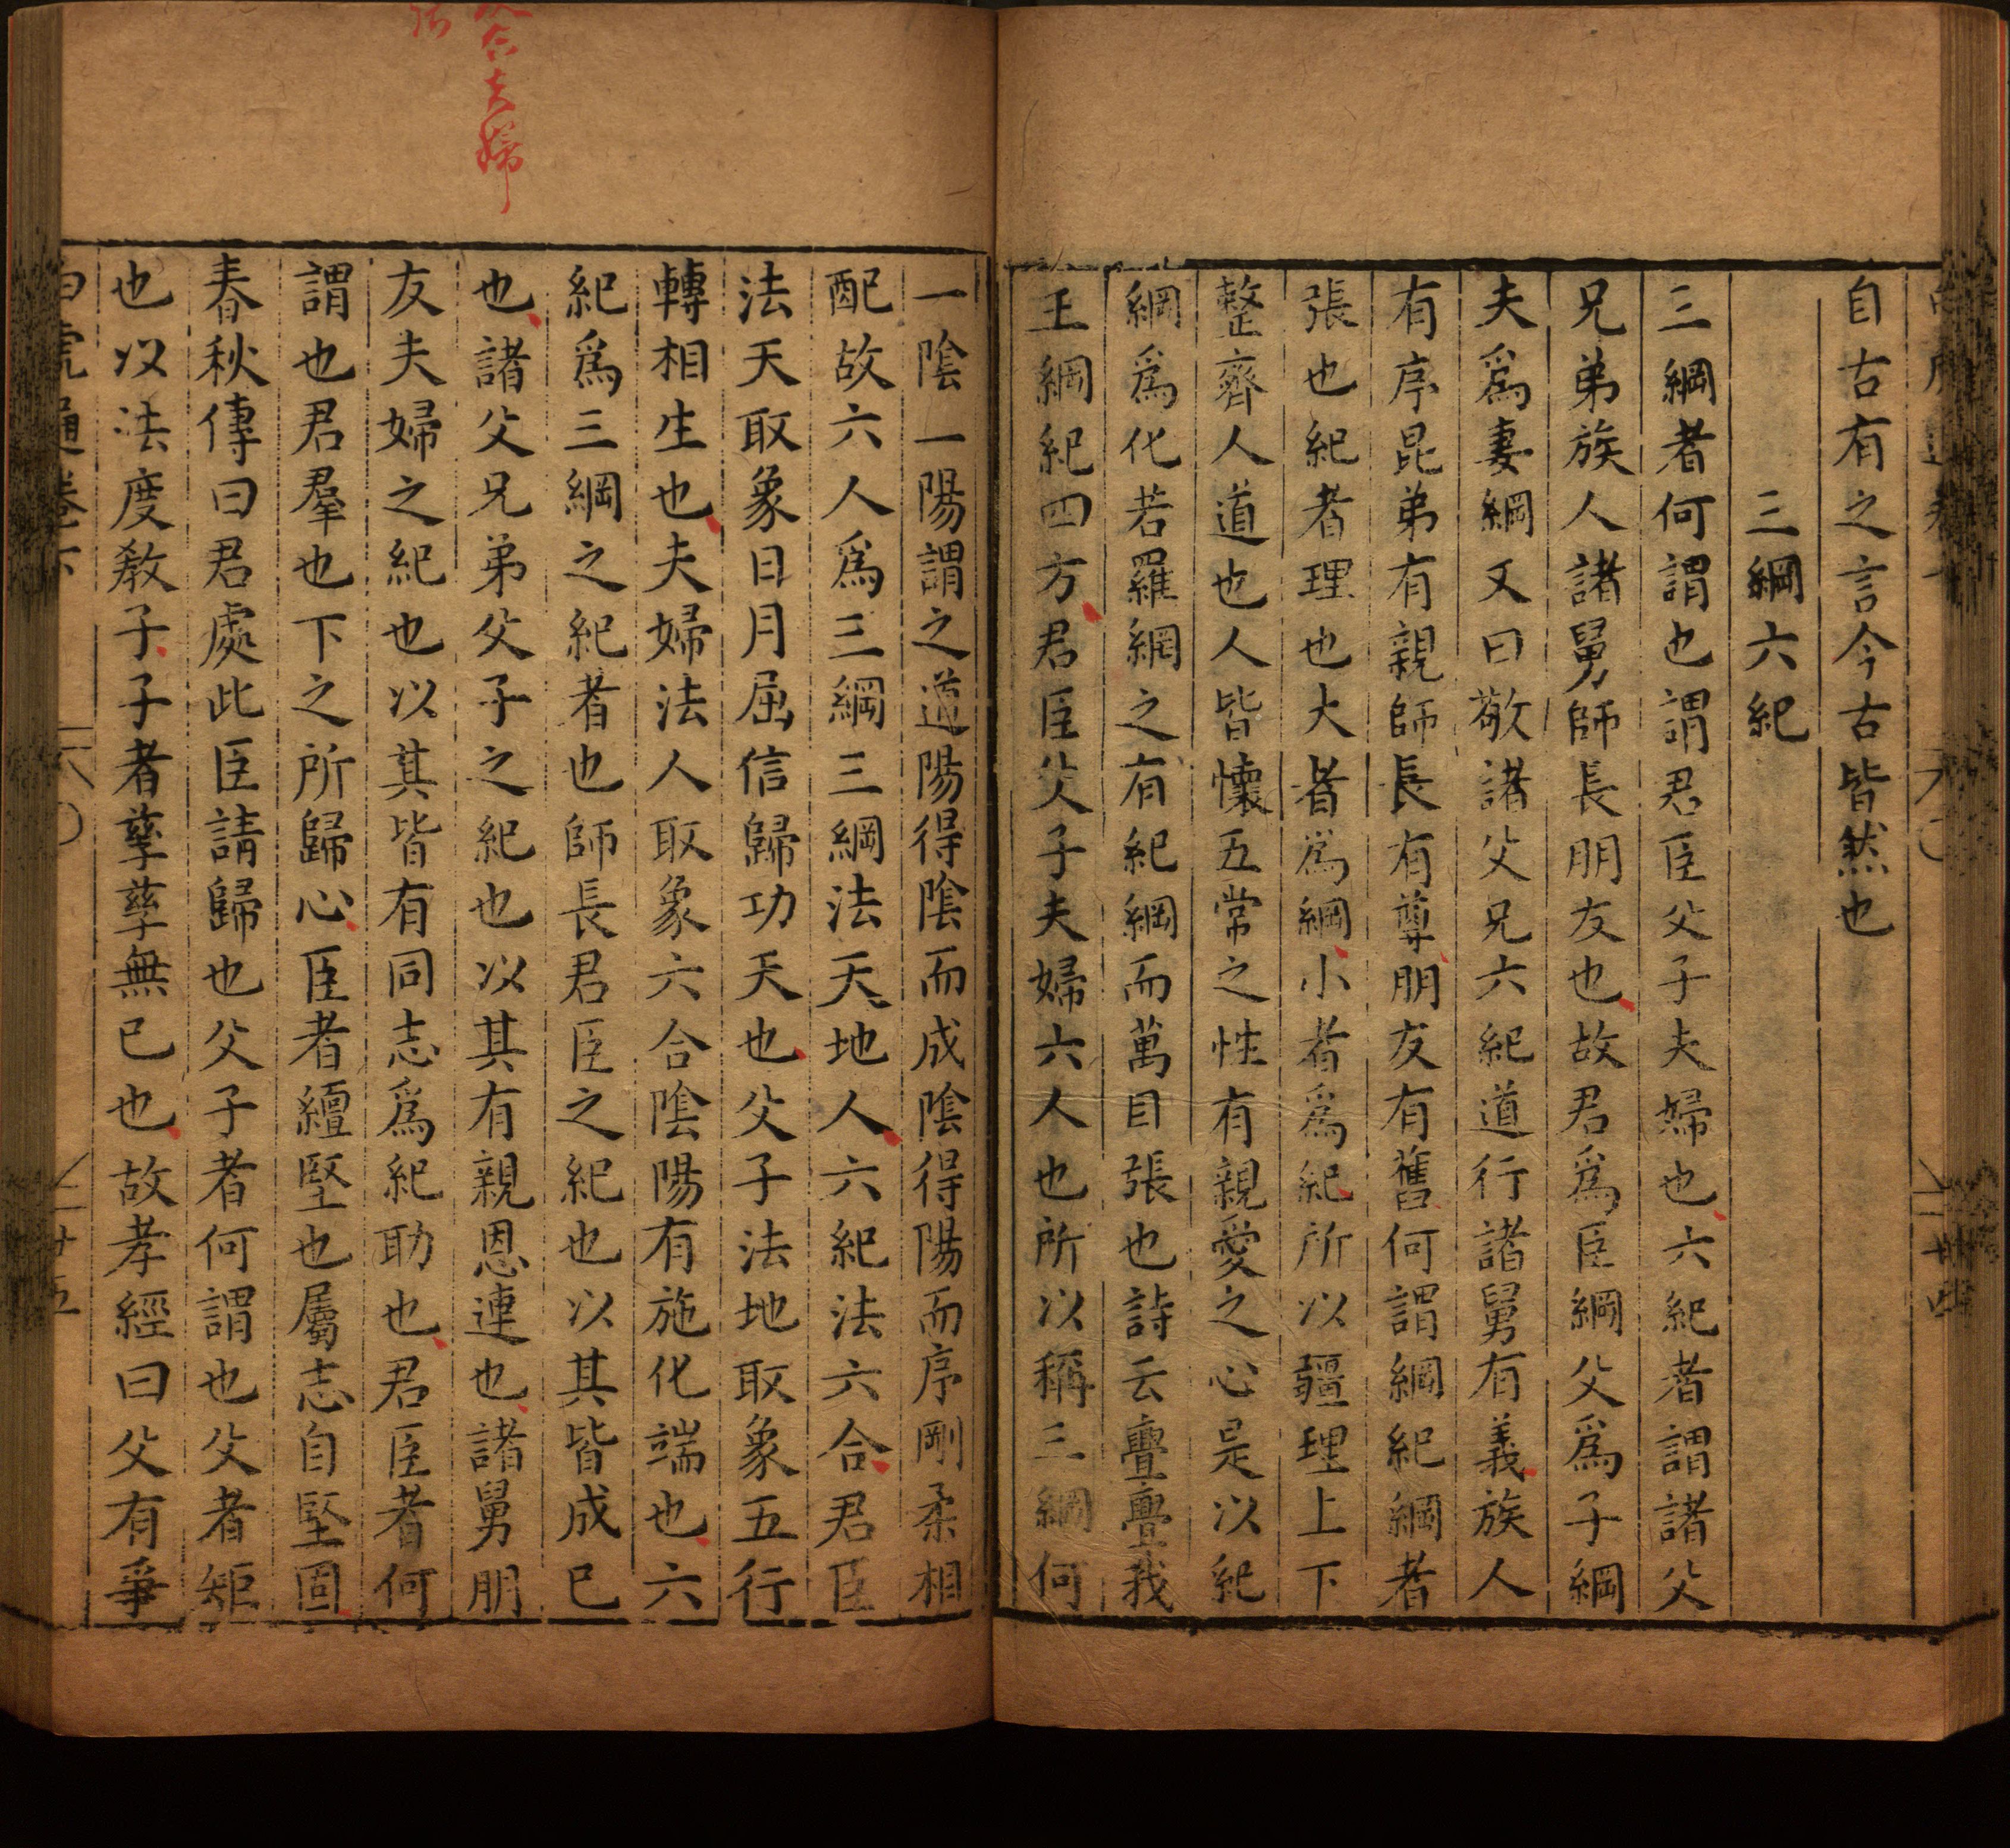 自古有之言今古皆然也
三綱六紀
三綱者何謂也謂君臣父子夫婦也六紀者謂諸父
兄弟族人諸舅師長朋友也故君爲臣綱父爲子綱
夫爲妻綱又曰敬諸父兄六紀道行諸舅有義族人
有序昆弟有親師長有尊朋友有舊何謂綱紀綱者
張也紀者理也大者爲綱小者爲紀所以疆理上下
整齊人道也人皆懷五常之性有親愛之心是以紀
綱爲化若羅網之有紀綱而萬目張也詩云亹亹我
王綱紀四方君臣父子夫婦六人也所以稱三綱何
一陰一陽謂之道陽得陰而成陰得陽而序剛柔相
配故六人爲三綱三綱法天地人六紀法六合君臣
法天取象日月屈信歸功天也父子法地取象五行
轉相生也夫婦法人取象六合陰陽有施化端也六
紀爲三綱之紀者也師長君臣之紀也以其皆成已
也諸父兄弟父子之紀也以其有親恩連也諸舅朋
友夫婦之紀也以其皆有同志爲紀助也君臣者何
謂也君羣也下之所歸心臣者繵堅也屬志自堅固
春秋傳曰君處此臣請歸也父子者何謂也父者矩
也以法度教子子者孳孳無已也故孝經曰父有爭
合夫婦